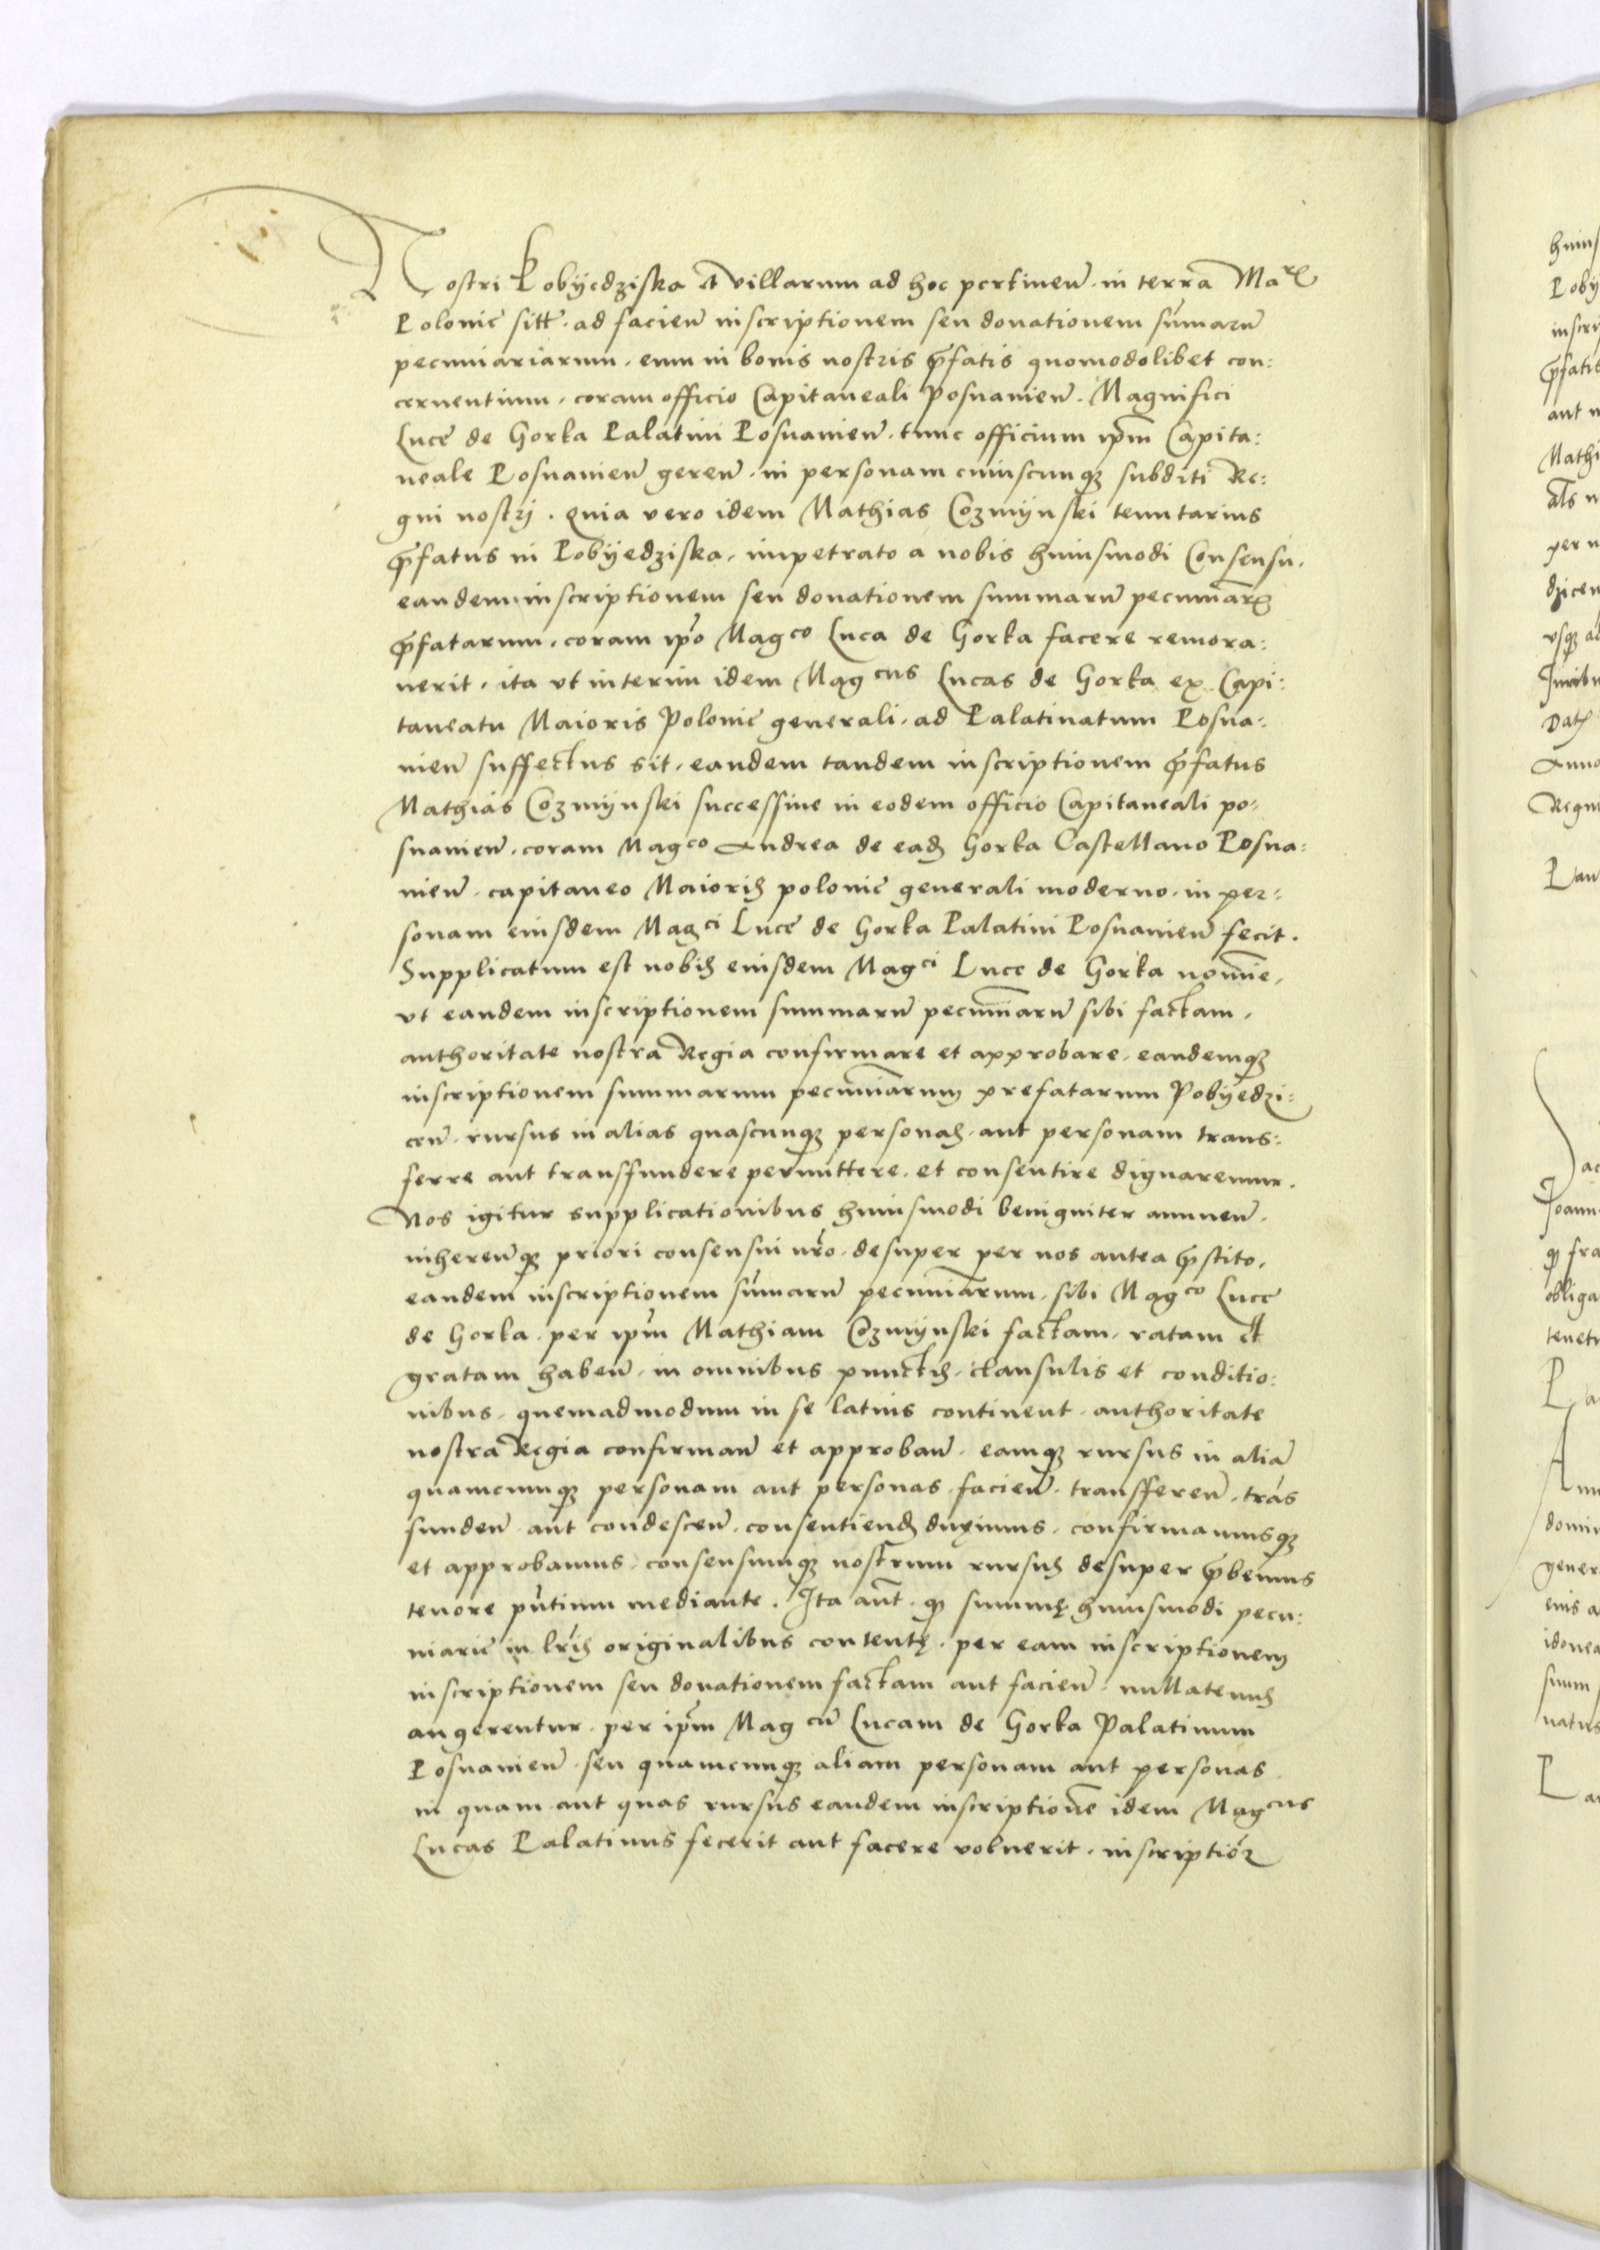 Nostri Pobÿedziska et villarum ad hoc pertineñ. in terra Mar
Polonię sitt. ad facieñ inscriptionem seu donationem sumarũ
pecuniariarum, eum in bonis nostris p̃fatis quomodolibet con:
cernentium, coram officio Capitaneali Posnanieñ. Magnifici
Lucę de Gorka Palatini Posnanieñ. tunc officium ip̃m Capita:
neale Posnanieñ gereñ. in personam cuiuscunqꝫ subditi Re:
gni nostrj. Quia vero idem Mathias Cozmÿnski tenutarius
p̃fatus in Pobÿedziska, impetrato a nobis huiusmodi Consensu,
eandem inscriptionem seu donationem summarũ pecuniar̃
p̃fatarum, coram ip̃o Magco Luca de Gorka facere remora:
uerit, ita vt interim idem Magcus Lucas de Gorka ex Capi:
taneatu Maioris Polonię generali, ad Palatinatum Posna:
nieñ suffectus sit, eandem tandem inscriptionem p̃fatus
Mathias Cozmÿnski successiue in eodem officio Capitaneali po:
snanieñ. coram Magco Andrea de eadẽ Gorka Castellano Posna:
nieñ. capitaneo Maioris polonię generali moderno, in per:
sonam eiusdem Magci Lucę de Gorka Palatini Posnanieñ fecit.
Supplicatum est nobis eiusdem Magci Luce de Gorka noĩe,
vt eandem inscriptionem summarũ pecuniarũ sibi factam,
authoritate nostra Regia confirmare et approbare, eandemqꝫ
inscriptionem summarum pecuniarum prefatarum Pobÿedzi:
ceñ. rursus in alias quascunqꝫ personas, aut personam trans:
ferre aut transfundere permittere, et consentire dignaremur.
Nos igitur supplicationibus huiusmodi benigniter annueñ.
inhereñqꝫ priori consensui nr̃o, desuper per nos antea p̃stito,
eandem inscriptionem sũmarũ pecuniarum, sibi Magco Luce
de Gorka, per ip̃m Mathiam Cozmÿnski factam, ratam et
gratam habeñ, in omnibus punctis, clausulis et conditio:
nibus, quemadmodum in se latius continent, authoritate
nostra Regia confirmañ et approbañ, eamqꝫ rursus in aliã
quamcunqꝫ personam aut personas, facieñ, transfereñ, trãs
fundeñ aut condesceñ, consentiendũ duximus, confirmamusqꝫ
et approbamus, consensumqꝫ nostrum rursus desuper p̃bemus
tenore pñtium mediante. Ita aut̃. qꝫ summę huiusmodi pecu:
niarię in lr̃is originalibus contentę, per eam inscriptionem
inscriptionem seu donationem factam aut facieñ, nullatenus
angerentur, per ip̃m Magcũ Lucam de Gorka Palatinum
Posnanieñ, seu quamcunqꝫ aliam personam aut personas
in quam aut quas rursus eandem inscriptionẽ idem Magcus
Lucas Palatinus fecerit aut facere voluerit, inscriptiõ